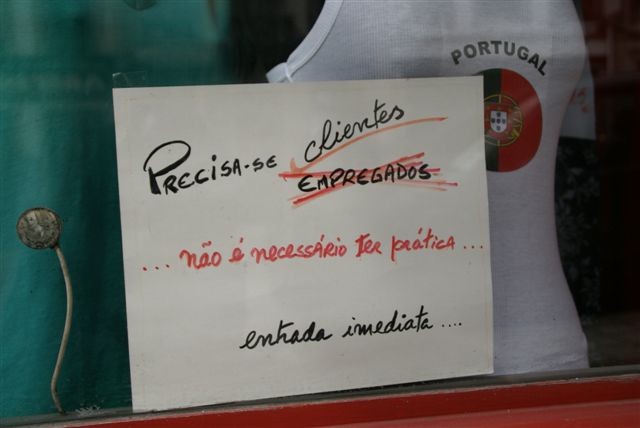 PORTUGAL
PRECISA-SE clientes
EMPREGADOS
... não é necessário ter prática ...
entrada imediata ....